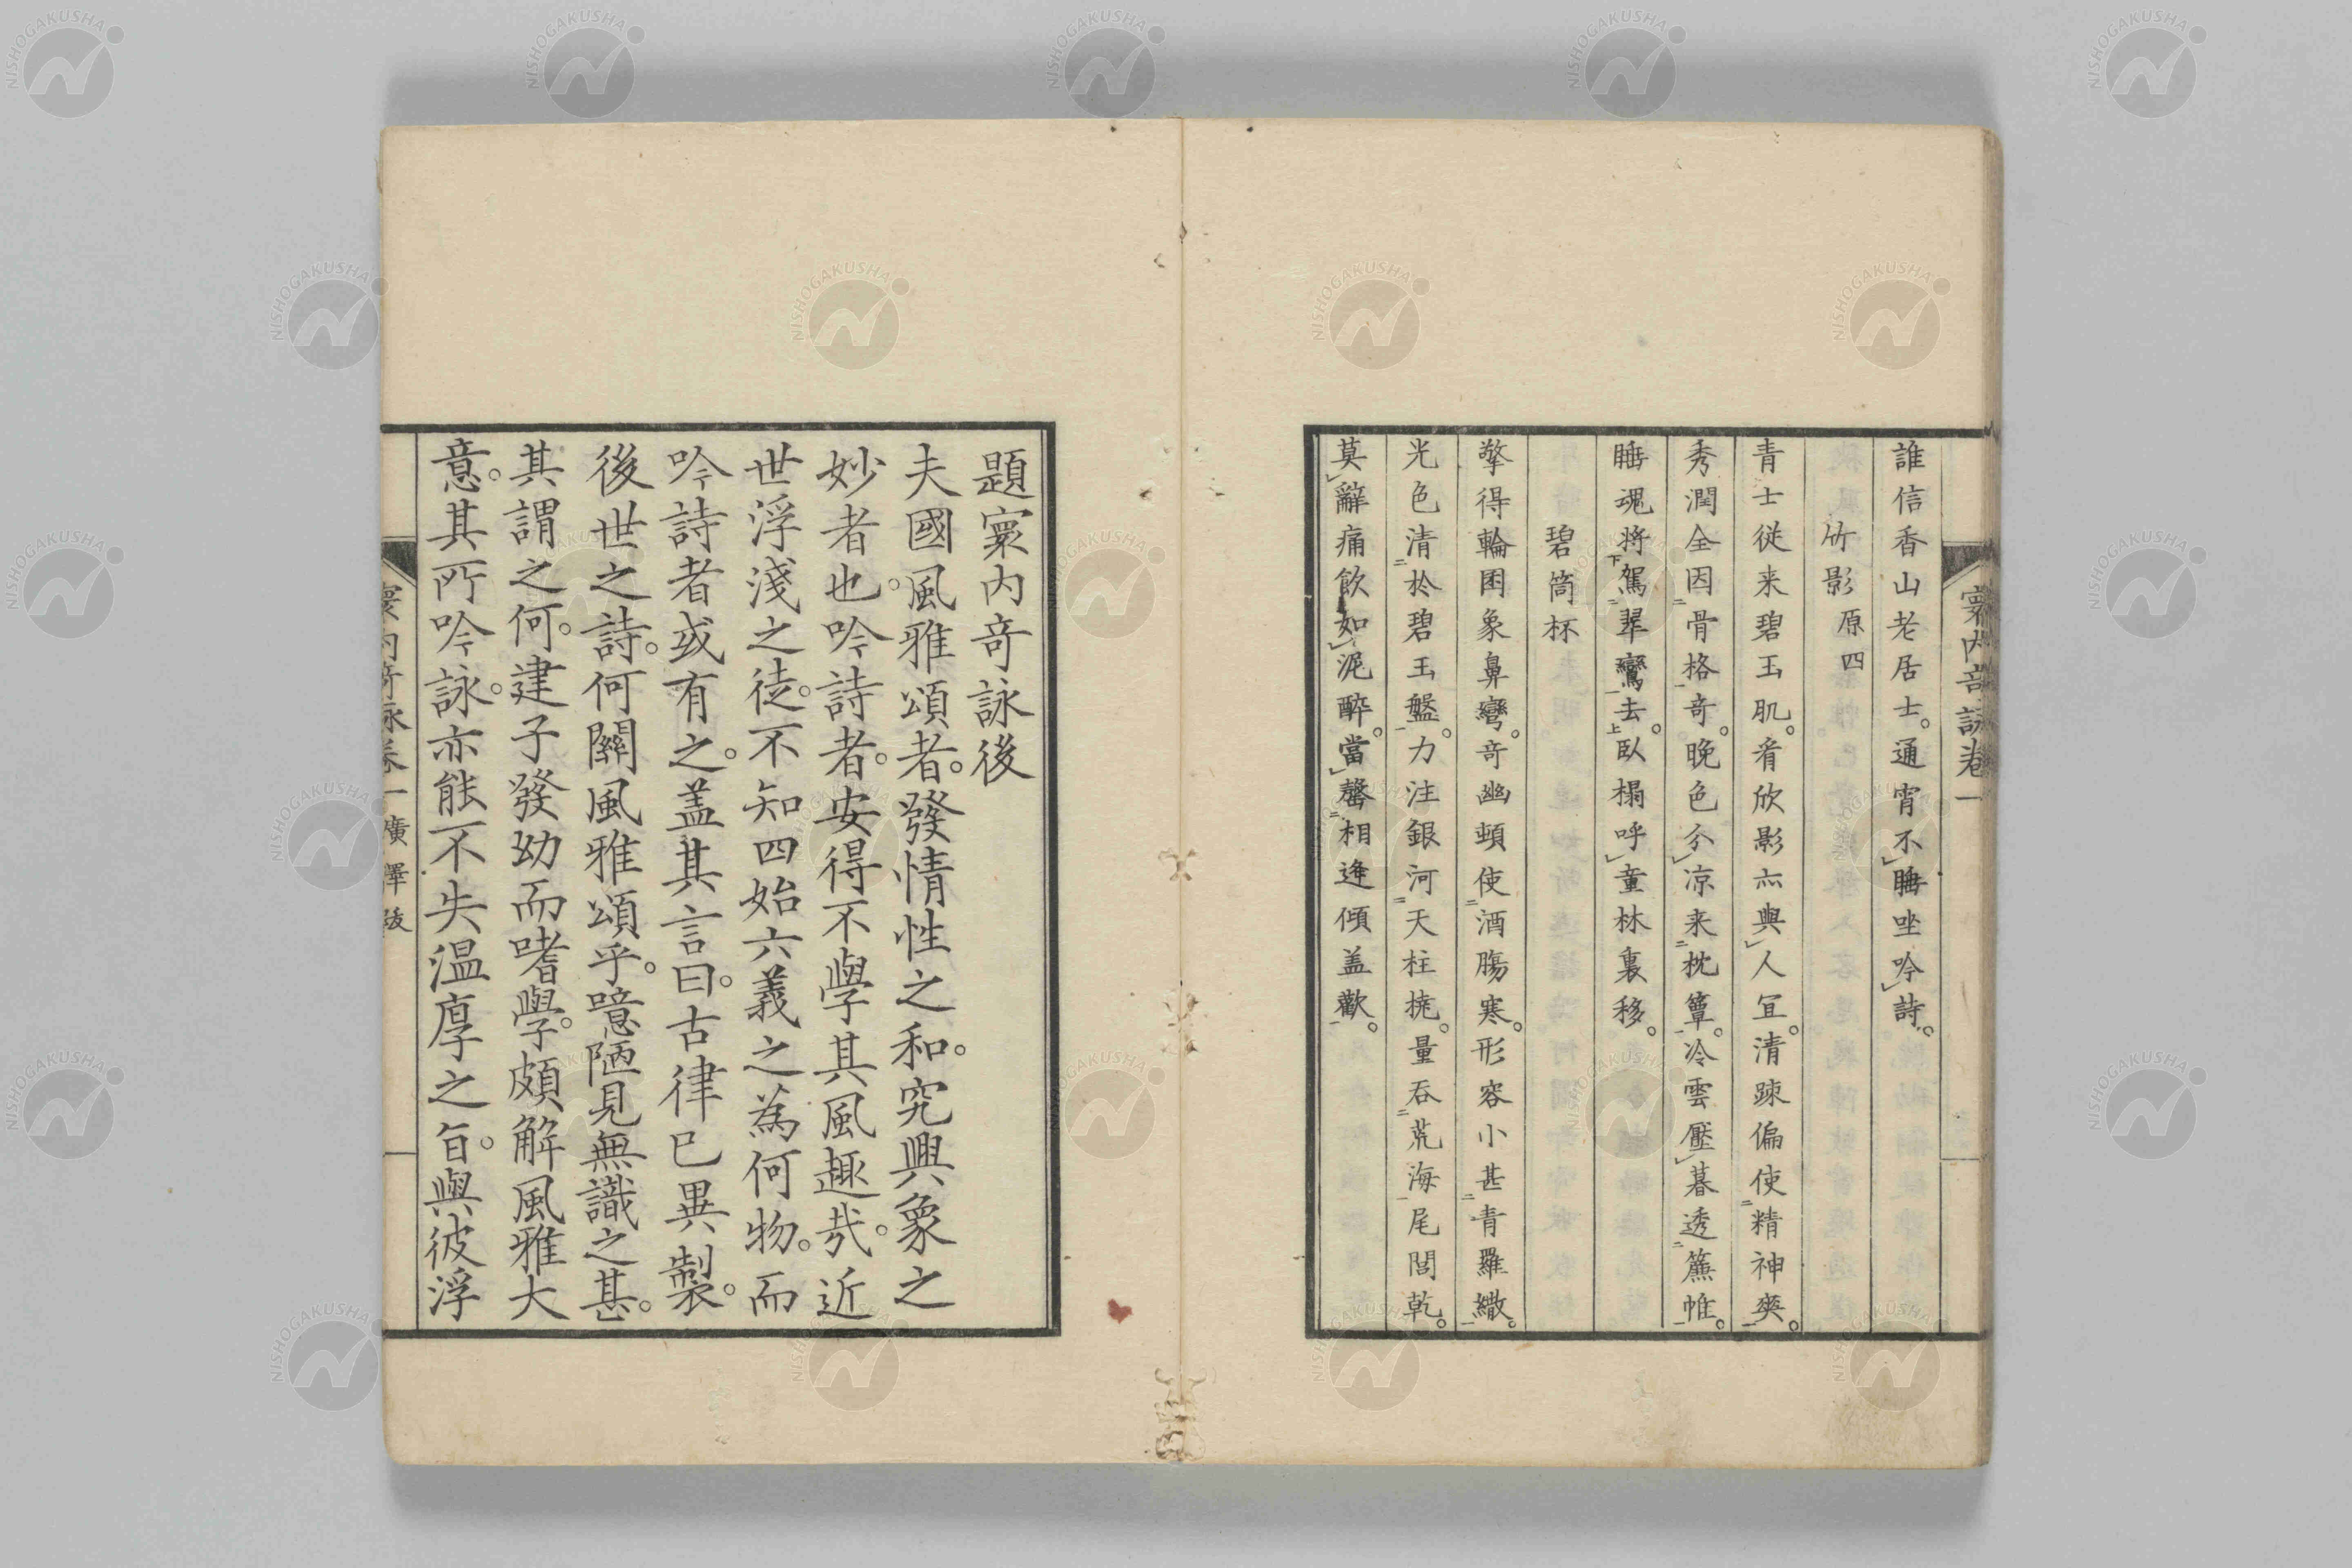 寰内奇詠卷一
誰信香山老居士。通宵不睡坐吟詩。
竹影 原四
青士従来碧玉肌。肴欣影亦與人宜。清踈偏使精神爽。
秀潤全因骨格奇。晩色分涼来枕簟。冷雲壓暮透簾帷。
睡魂将駕翠鸞去。臥榻呼童林裏移。
碧筒杯
擎得輪囷象鼻彎。奇幽頓使酒膓寒。形容小甚青羅繖。
光色清於碧玉盤。力注銀河天柱撓。量吞荒海尾閭乾。
莫辭痛飲如泥醉。當罄相逢傾盖歡。
題寰内奇詠後
夫國風雅頌者。發情性之和。究興象之
妙者也。吟詩者。安得不學其風趣哉。近
世浮淺之徒。不知四始六義之為何物。而
吟詩者或有之。盖其言曰。古律已異製。
後世之詩。何關風雅頌乎。噫陋見無識之甚。
其謂之何。建子發幼而嗜學。頗解風雅大
意。其所吟詠。亦能不失温厚之旨。與彼浮
寰内奇詠卷一 廣澤跋
NISHOGAKUSHA